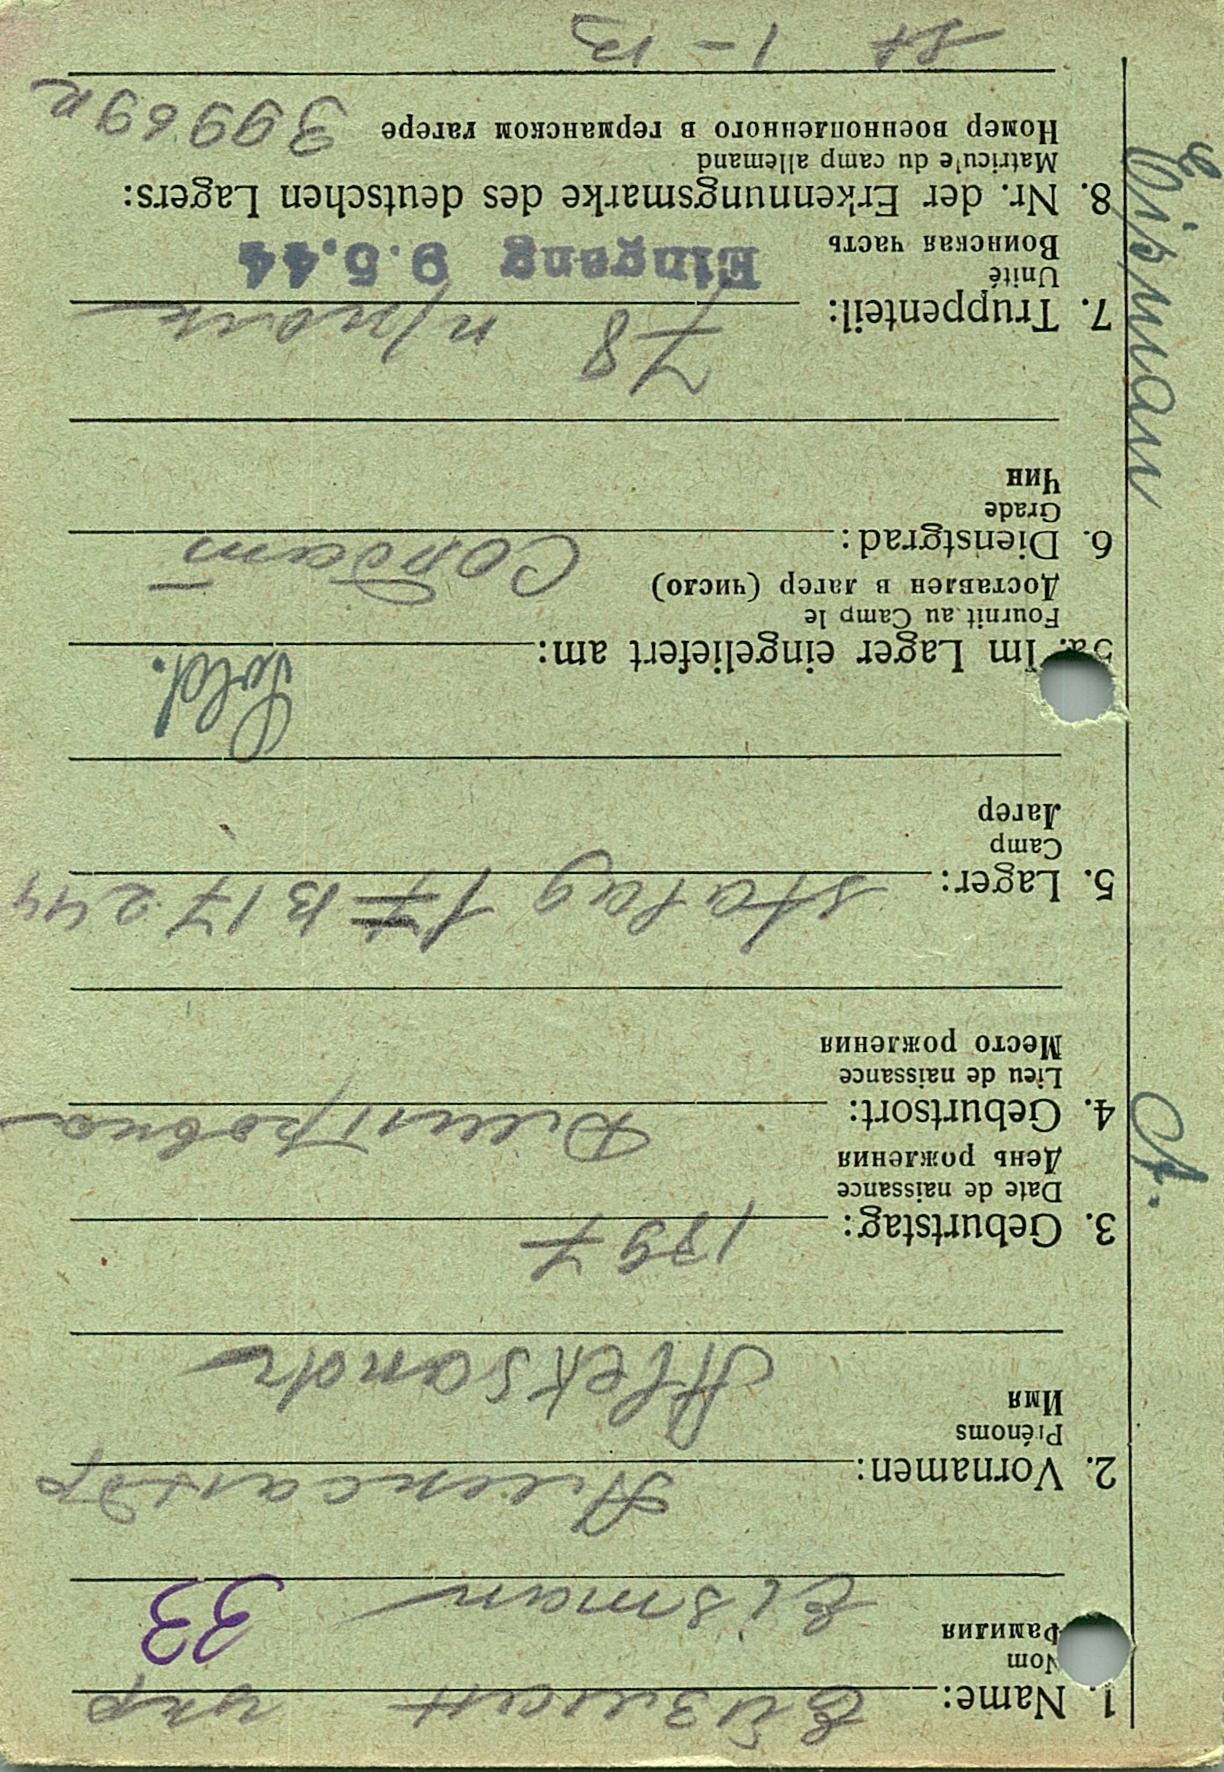 1. Name: Ейзман укр
Nom
Фамилия
Eisman
33
2. Vornamen: Александр
Prénoms
Имя
Aleksandr
3. Geburtstag: 1897
Date de naissance
День рождения
4. Geburtsort:
Lieu de naissance
Место рождения
5. Lager: stalag 17 B 17 2 44
Camp
Лагер
Sold.
5a. Im Lager eingeliefert am:
Fournit au Camp le
Доставлен в лагер (число)
6. Dienstgrad: Солдат
Grade
Чин
78 п/полк
7. Truppenteil:
Unité
Воинская часть
Eingang 9.5.44
8. Nr. der Erkennungsmarke des deutschen Lagers:
Matricu'e du camp allemand
Номер военнопленного в германском лагере 39969
st 1 - B
Eisman A.